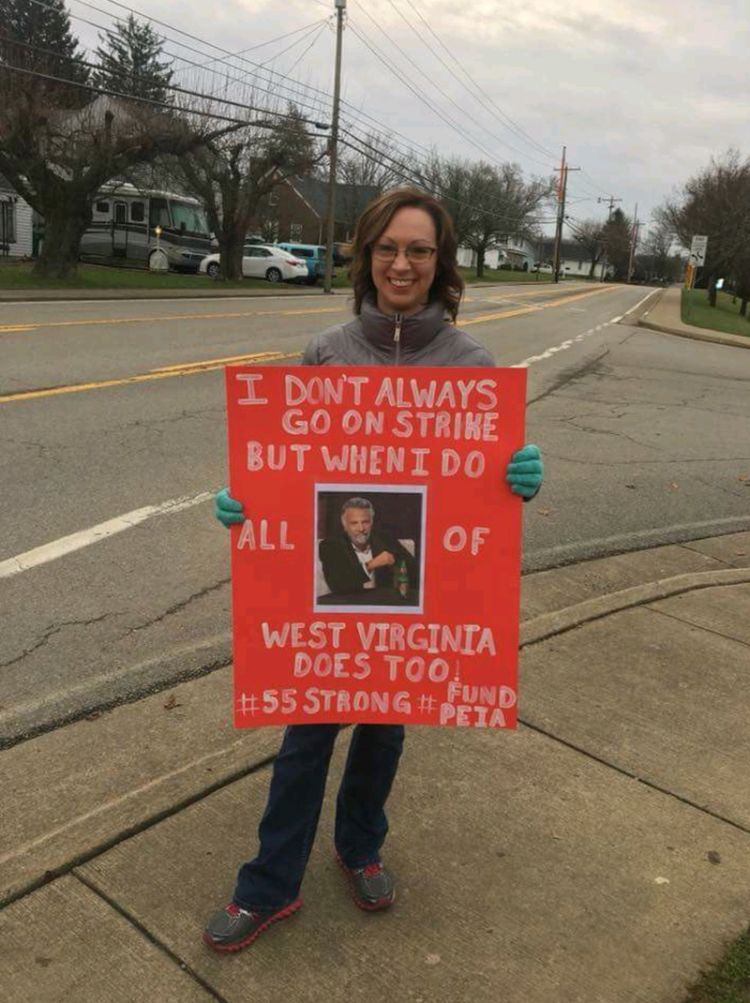 I DON'T ALWAYS
GO ON STRIKE
BUT WHEN I DO
ALL OF
WEST VIRGINIA
DOES TOO!
#55 STRONG # FUND
PEIA